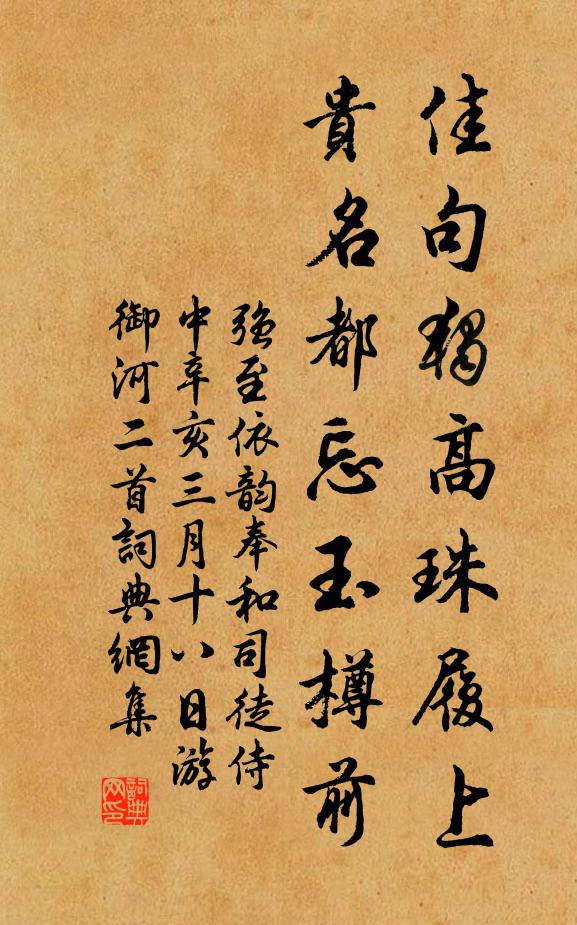 佳句獨高珠履上
貴名都忘玉樽前
強至依韵奉和司徒侍
中辛亥三月十八日游
御河二首詞典網集
詞典網印